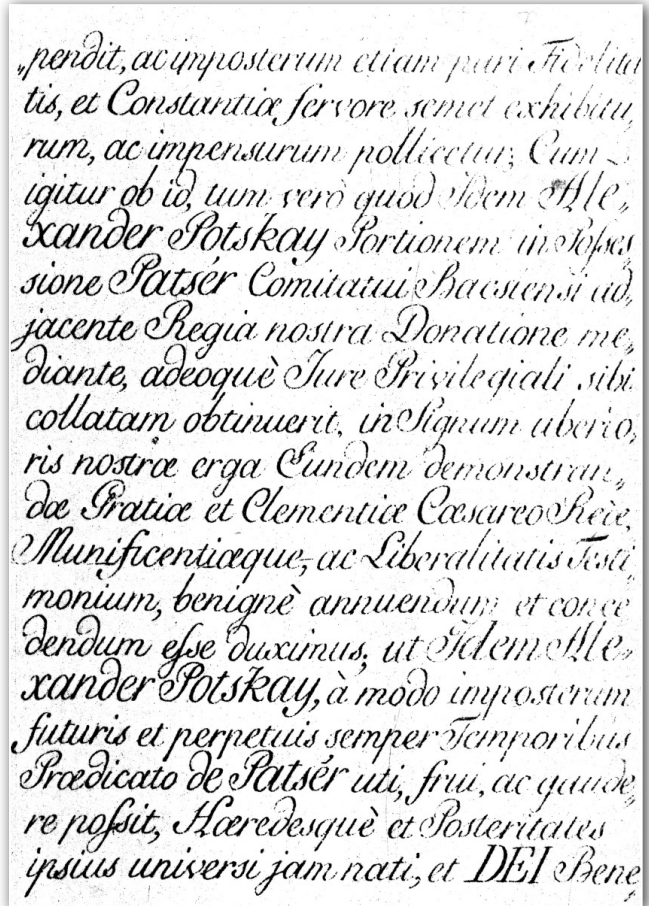 „pendit, ac imposterum etiam pari Fidelita
tis, et Constantiæ fervore semet exhibitu„
rum, ac impensurum pollicetur; Cum
igitur ob id, tum verò quòd Idem Ale„
xander Potskay Portionem in Posses
sione Patsér Comitatui Bacsiensi ad„
jacente Regia nostra Donatione me„
diante, adeoquè Jure Privilegiali sibi
collatam obtinuerit, in Signum uberio„
ris nostræ erga Eundem demonstran„
dæ Gratiæ et Clementiæ Cæsareo Reiæ,
Munificentiæque, ac Liberalitatis Testi
monium, benignè annuendum et conce
dendum esse duximus; ut Idem Ale„
xander Potskay, à modo imposterum
futuris et perpetuis semper Temporibus
Prædicato de Patsér uti, frui, ac gaude„
re possit, Hæredesquè et Posteritates
ipsius universi jam nati, et DEI Bene„